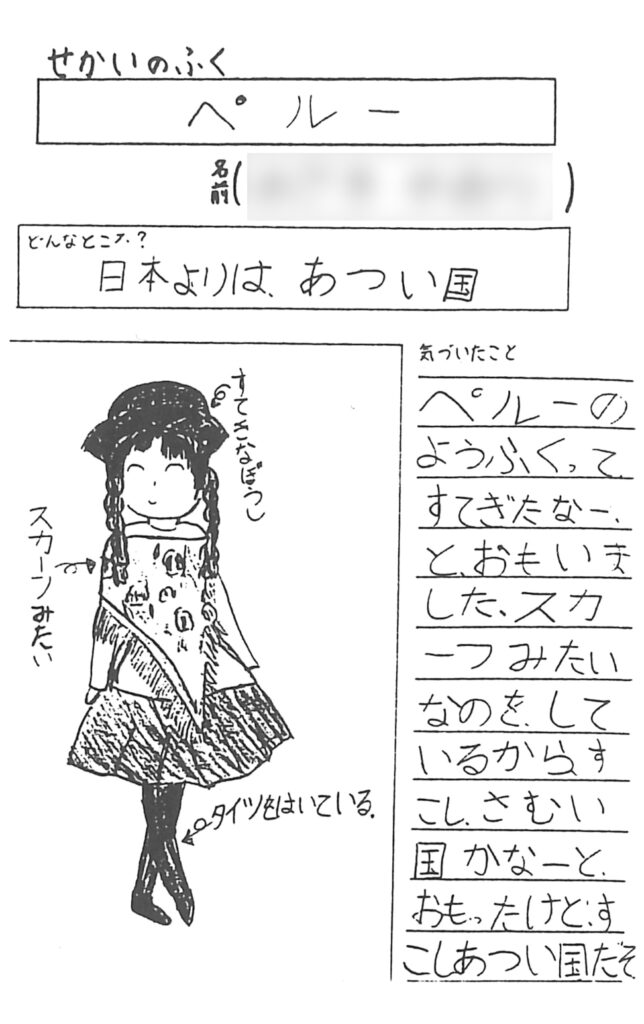 せかいのふく
ペルー
名前( )
どんなところ?
日本よりは、あつい国
すてきなぼうし
スカーンみたい
タイツをはいている。
気づいたこと
ペルーの
ようふくって、
すてぎだなー、
と、おもいま
した、スカ
ーつみたい
なのを、して
いるから、す
こし、さむい
国かなーと、
おもったけど、す
こしあつい国だそ